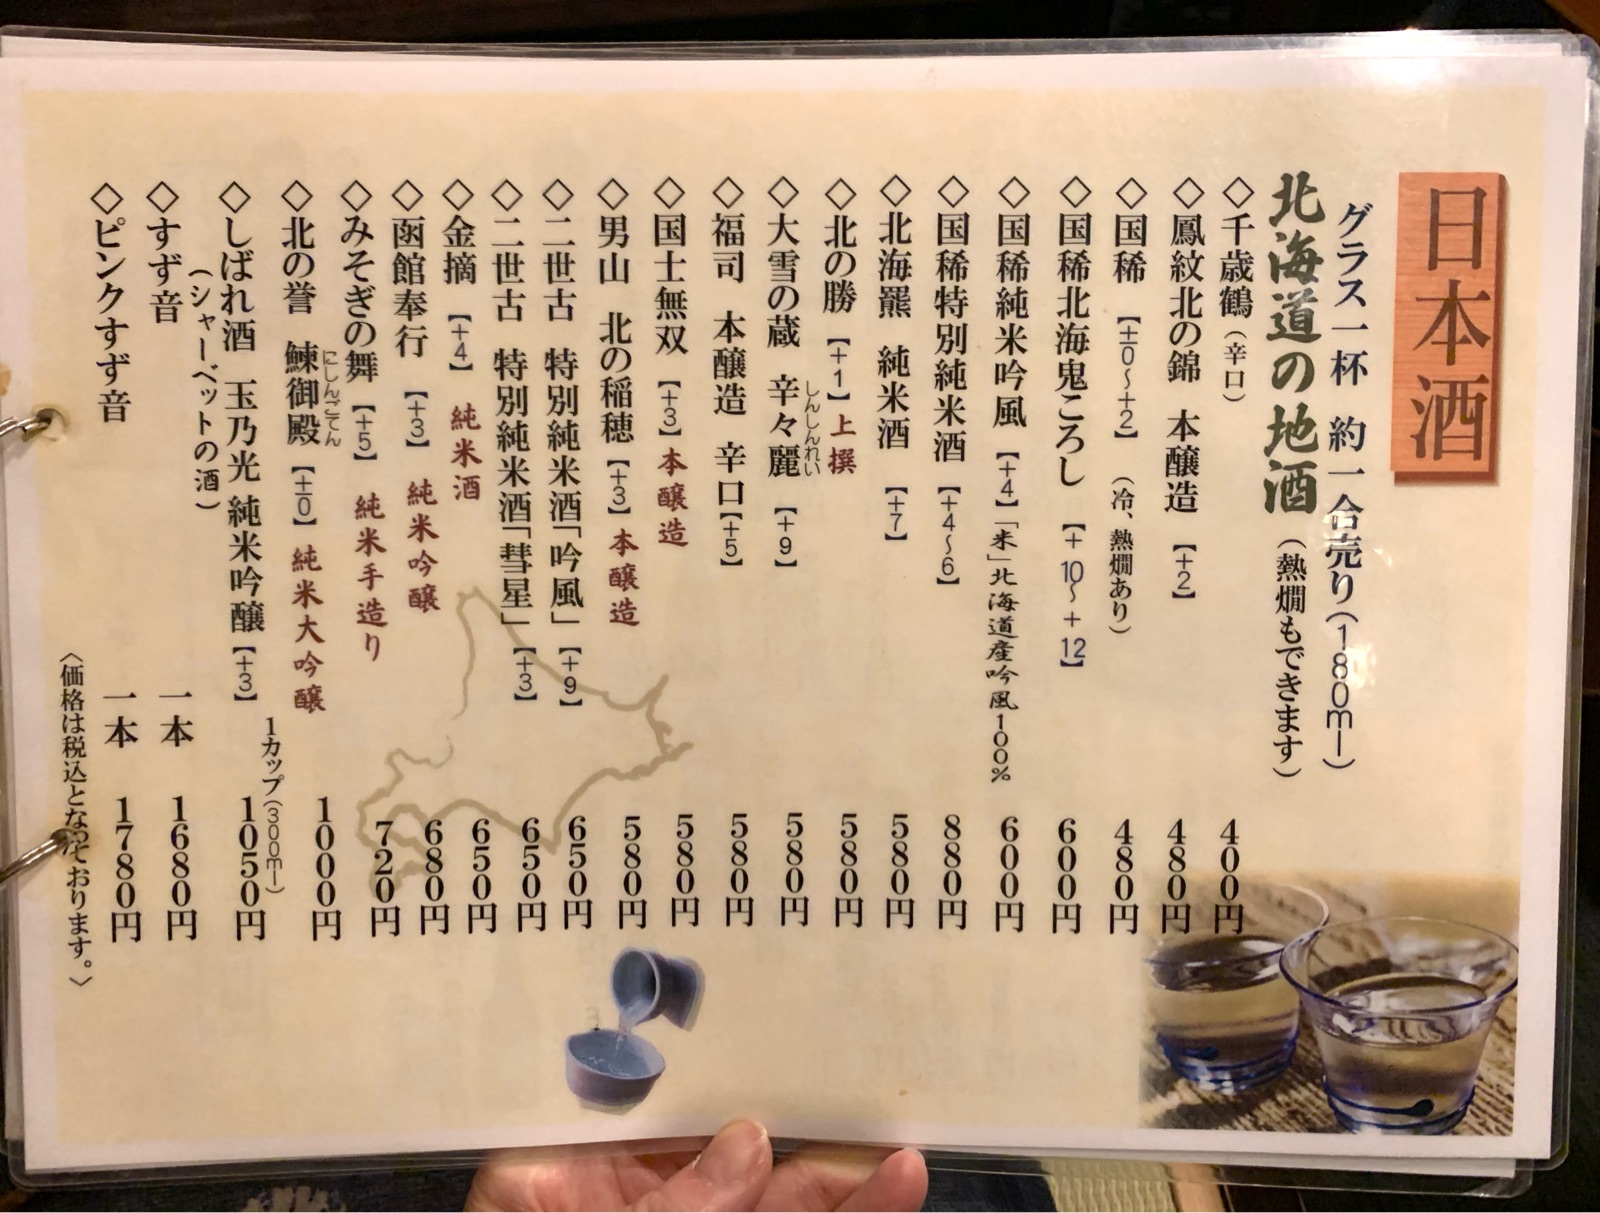 日本酒
グラス一杯 約一合売り(180ml)
北海道の地酒(熱燗もできます)
◇千歳鶴(辛口) 400円
◇鳳紋北の錦 本醸造 【+2】 480円
◇国稀 【±0〜+2】 (冷、熱燗あり) 480円
◇国稀北海鬼ころし 【+10〜+12】 600円
◇国稀純米吟風 【+4】「米」北海道産吟風100% 600円
◇国稀特別純米酒 【+4〜6】 880円
◇北海羆 純米酒 【+7】 580円
◇北の勝 【+1】上撰 580円
◇大雪の蔵 辛々麗 【+9】 580円
しんしんれい
◇福司 本醸造 辛口【+5】 580円
◇国士無双 【+3】本醸造 580円
◇男山 北の稲穂 【+3】本醸造 580円
◇二世古 特別純米酒「吟風」【+9】 650円
◇二世古 特別純米酒「彗星」【+3】 650円
◇金摘 【+4】 純米酒 650円
◇函館奉行 【+3】 純米吟醸 680円
◇みそぎの舞 【+5】 純米手造り 720円
◇北の誉 鰊御殿 【±0】 純米大吟醸 1000円
にしんごてん
◇しばれ酒 玉乃光 純米吟醸【+3】 1050円
1カップ(300ml)
(シャーベットの酒)
◇すず音 一本 1680円
◇ピンクすず音 一本 1780円
〈価格は税込となっております。〉